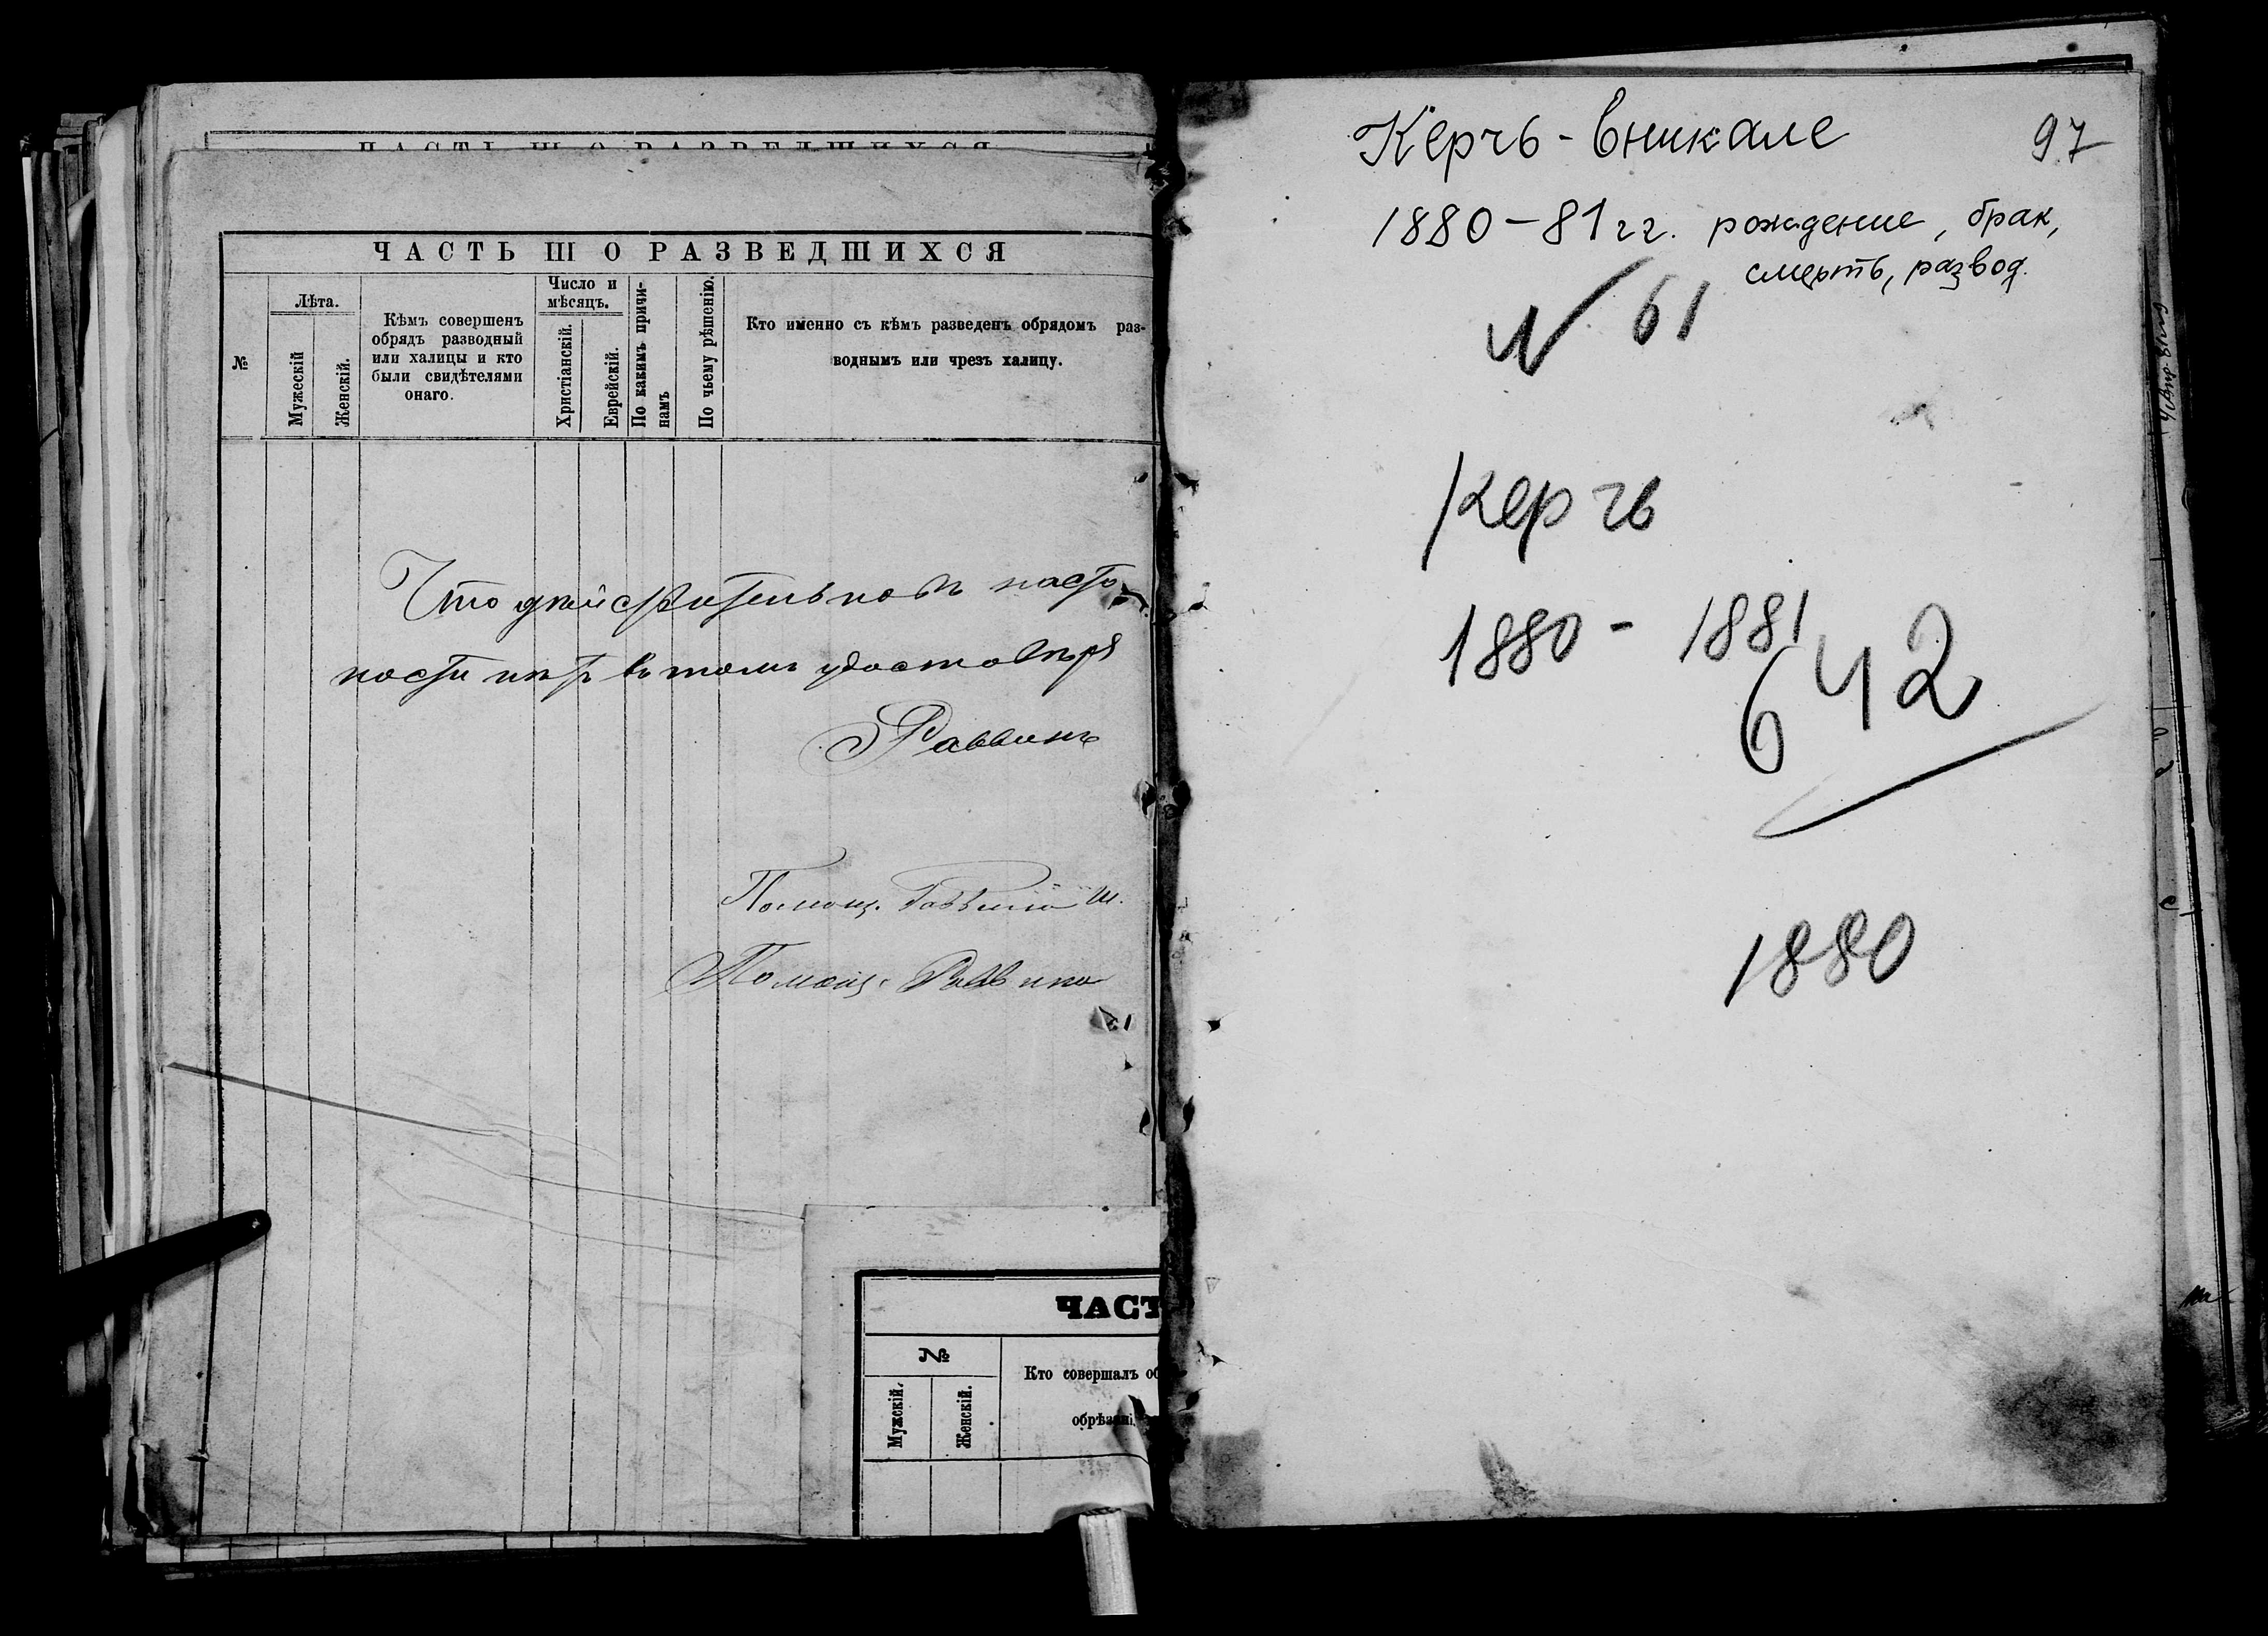 ЧАСТЬ III О РАЗВЕДШИХСЯ
№
Лѣта.
Мужескій
Женскій.
Кѣмъ совершенъ
обрядъ разводный
или халицы и кто
были свидѣтелями
онаго.
Число и
мѣсяцъ.
Христіанскій.
Еврейскій.
По какимъ причи-
намъ
По чьему рѣшенію.
Кто именно съ кѣмъ разведенъ обрядомъ раз-
воднымъ или чрезъ халицу.
Что
ности нѣтъ въ томъ удостовѣря
Раввинъ
Помощ. Раввина Ш.
Помощ. Раввина
ЧАСТ
№
Мужскій.
Женскій.
Кто совершалъ об
обрѣзані
Керчь-Еникале
97
1880-81 гг. рождение, брак,
смерть, развод.
N 61
Керчь
1880 - 1881
642
1880